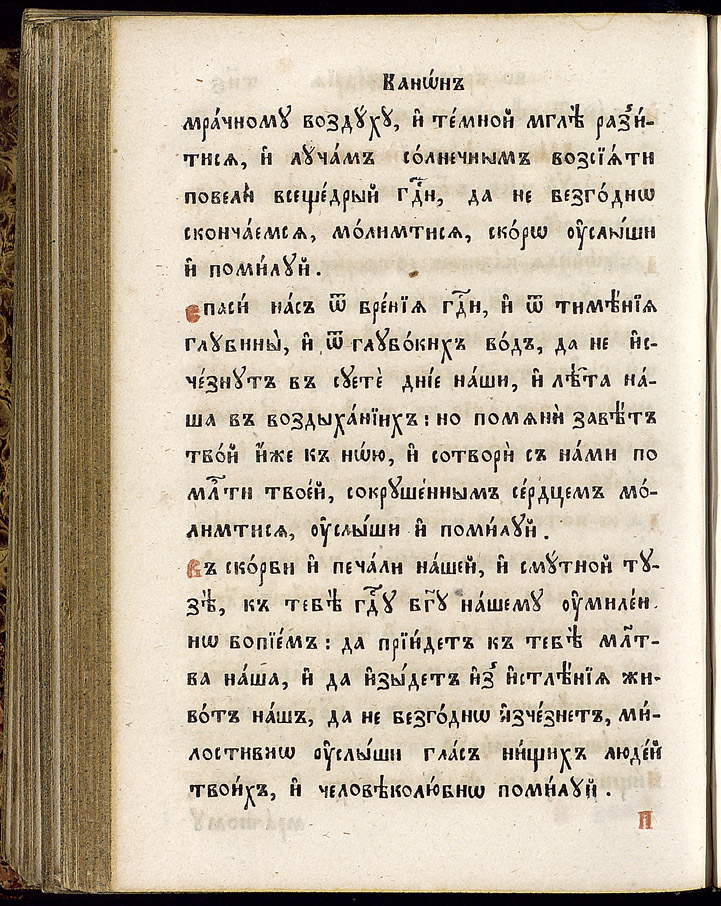 Канѡ́нъ
мра́чномꙋ во́здꙋхꙋ, и҆ те́мной мглѣ̀ разы́-
тисѧ, и҆ лꙋча́мъ со́лнечнымъ возсїѧ́ти
повели̂ всеще́дрый гдⷭ҇и, да не безго́днѡ
сконча́емсѧ, мо́лимтисѧ, ско́рѡ ᲂу҆слы́ши
и҆ поми́лꙋй.
спаси́ на́съ ѿ бре́нїѧ гдⷭ҇и, и҆ ѿ тимѣ́нїѧ
глꙋбины̀, и҆ ѿ глꙋбо́кихъ во́дъ, да не и҆с-
че́знꙋтъ въ сꙋетѐ дні́е на́ши, и҆ лѣ́та на́-
ша въ воздыха́нїихъ: но помѧнѝ завѣ́тъ
тво́й и҆́же къ нѡ́ю, и҆ сотворѝ съ на́ми по
млⷭ҇ти твое́й, сокрꙋше́ннымъ се́рдцемъ мо́-
лимтисѧ, ᲂу҆слы́ши и҆ поми́лꙋй.
въ ско́рби и҆ печа́ли на́шей, и҆ смꙋ́тной тꙋ-
зѣ̀, къ тебѣ̀ гдⷭ҇ꙋ бг҃ꙋ на́шемꙋ ᲂу҆миле́н-
нѡ вопїе́мъ: да прїи́детъ къ тебѣ̀ млт҃-
ва на́ша, и҆ да и҆зы́детъ и҆з̾ и҆стлѣ́нїѧ жи-
во́тъ на́шъ, да не безго́днѡ и҆зче́знетъ, ми́-
лостивнѡ ᲂу҆слы́ши гла́съ ни́щихъ люде́й
твои́хъ, и҆ человѣколю́бнѡ поми́лꙋй.
П